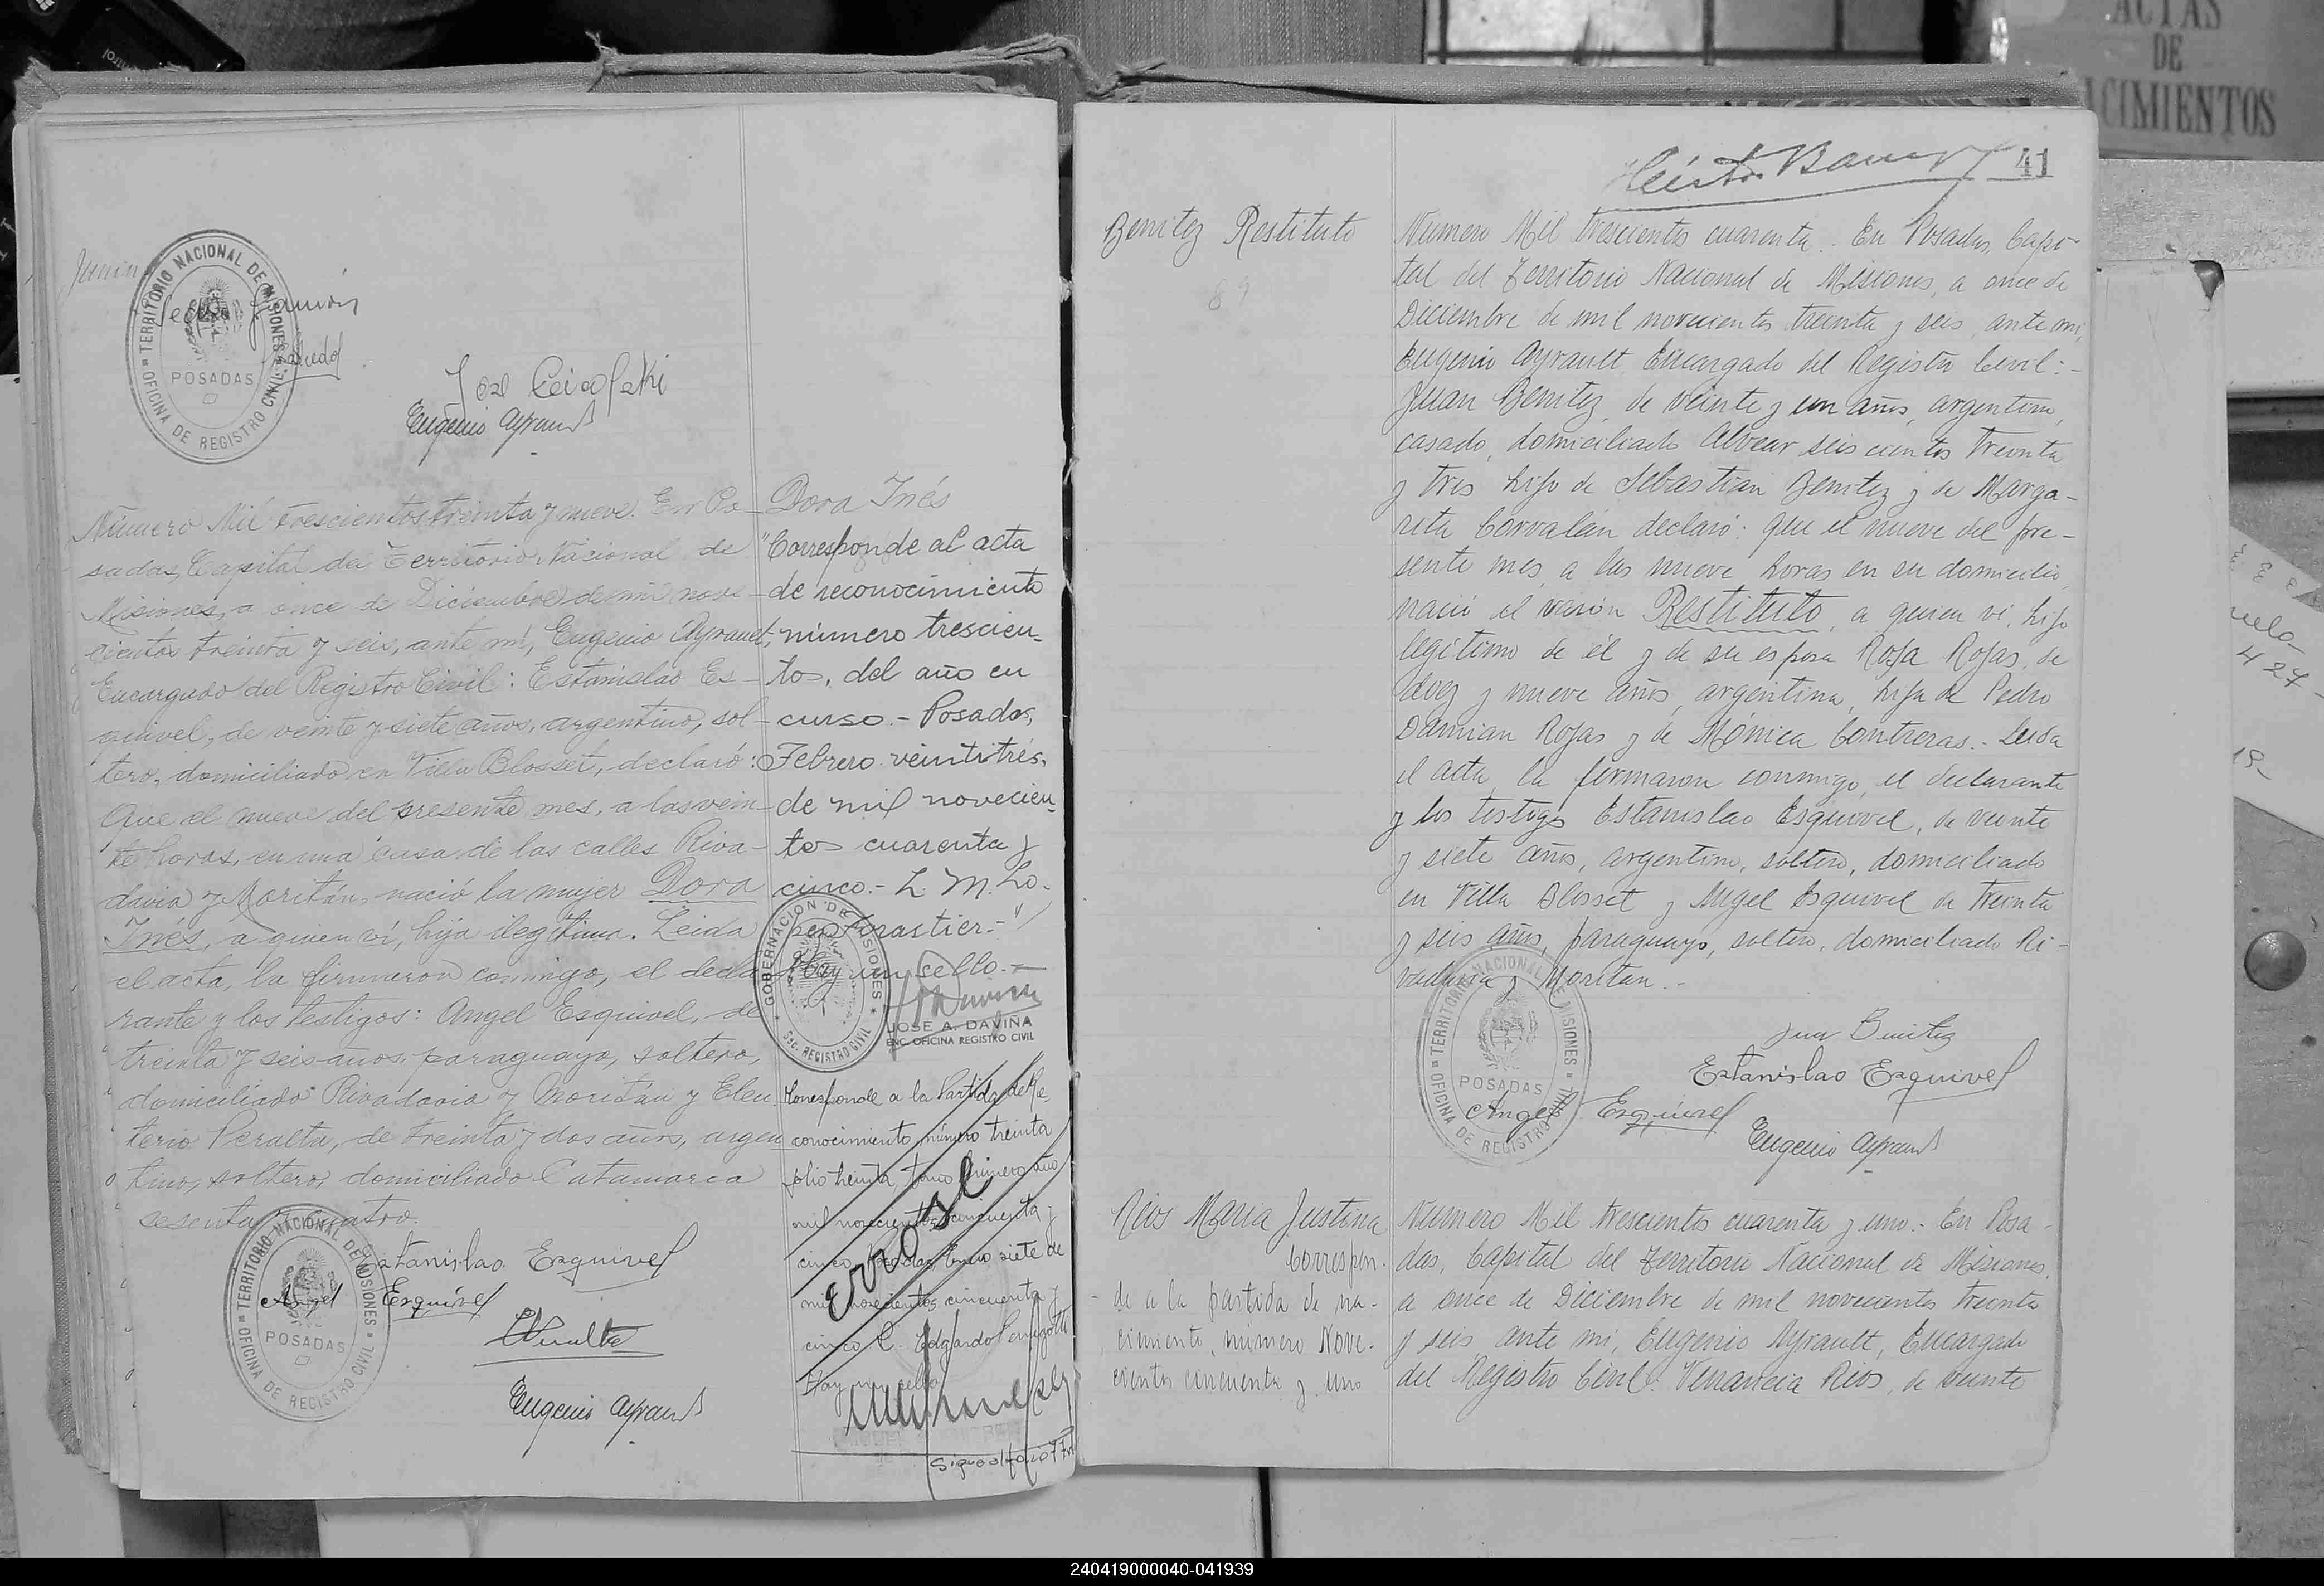 ACTAS
DE
CIMIENTOS
TERRITORIO NACIONAL DE MISIONES
POSADAS
OFICINA DE REGISTRO CIVIL
Eugenio Ayrault
Número Mil trescientos treinta y nueve. En Po-
sadas, Capital del Territorio Nacional de
Misiones, a once de Diciembre de mil nove-
cientos treinta y seis, ante mí, Eugenio Ayrault,
Encargado del Registro Civil: Estanislao Es-
quivel, de veinte y siete años, argentino, sol-
tero, domiciliado en Villa Blosset, declaró:
Que el nueve del presente mes, a las vein-
te horas, en una casa de las calles Riva-
davia y Moritán, nació la mujer Dora
Inés, a quien ví, hija ilegítima. Leida
el acta, la firmaron conmigo, el decla-
rante y los testigos: Angel Esquivel, de
treinta y seis años, paraguayo, soltero,
domiciliado Rivadavia y Moritán y Eleu
terio Peralta, de treinta y dos años, argen
tino, soltero, domiciliado Catamarca
sesenta y cuatro.
TERRITORIO NACIONAL DE MISIONES
POSADAS
OFICINA DE REGISTRO CIVIL
Estanislao Esquivel
Angel Esquivel
Peralta
Eugenio Ayrault
Dora Inés
"Corresponde al acta
de reconocimiento
número trescien-
tos, del año en
curso.- Posadas,
Febrero veintitrés,
de mil novecien-
tos cuarenta y
cinco.- L. M. Lo-
pez Forastier.-"
Hay un sello.-
GOBERNACION DE MISIONES
SEC. REGISTRO CIVIL
JOSE A. DAVIÑA
ENC. OFICINA REGISTRO CIVIL
Corresponde a la Partida de Re
conocimiento número treinta
folio treinta, tomo primero año
mil novecientos cincuenta y
cinco. Posadas, Enero siete de
mil novecientos cincuenta y
cinco C. Edgardo
Hay un sello
Erróse
Sigue al folio
41
Benitez Restituto
89
Numero Mil trescientos cuarenta.. En Posadas, Capi-
tal del Territorio Nacional de Misiones, a once de
Diciembre de mil novecientos treinta y seis, ante mi,
Eugenio Ayrault, Encargado del Registro Civil:-
Juan Benitez, de veinte y un años, argentino,
casado, domiciliado Alvear seis cientos treinta
y tres hijo de Sebastian Benitez y de Marga-
rita Corvalán declaró: que el nueve del pre-
sente mes, a las nueve horas en su domicilio,
nació el varón Restituto, a quien vi, hijo
legitimo de él y de su esposa Rosa Rojas, de
diez y nueve años, argentina, hija de Pedro
Damian Rojas y de Mónica Contreras.- Leida
el acta, la firmaron conmigo, el declarante
y los testigos Estanislao Esquivel, de veinte
y siete años, argentino, soltero, domiciliado
en Villa Blosset y Angel Esquivel de treinta
y seis años, paraguayo, soltero, domiciliado Ri-
vadavia y Moritan.-
TERRITORIO NACIONAL DE MISIONES
POSADAS
OFICINA DE REGISTRO CIVIL
Juan Benitez
Estanislao Esquivel
Angel Esquivel
Eugenio Ayrault
Rios Maria Justina
Correspon-
de a la partida de na-
cimiento, número Nove-
cientos cincuenta y uno
Numero Mil trescientos cuarenta y uno.- En Posa-
das, Capital del Territorio Nacional de Misiones,
a once de Diciembre de mil novecientos treinta
y seis, ante mi, Eugenio Ayrault, Encargado
del Registro Civil: Venancia Rios, de veinte
427
240419000040-041939